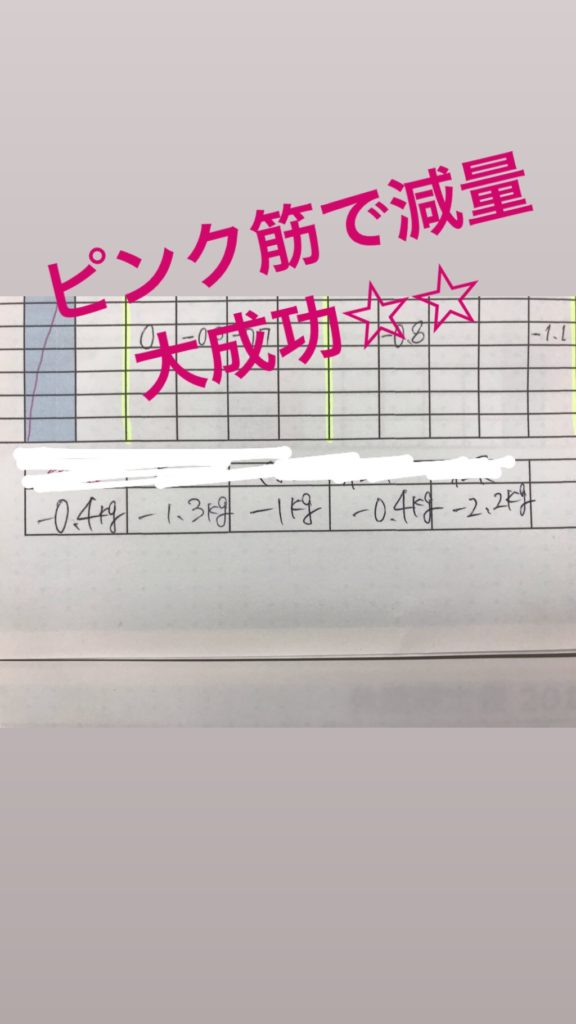 ピンク筋で減量
大成功☆☆
0 -0.8 -1.1
-0.4kg -1.3kg -1kg -0.4kg -2.2kg